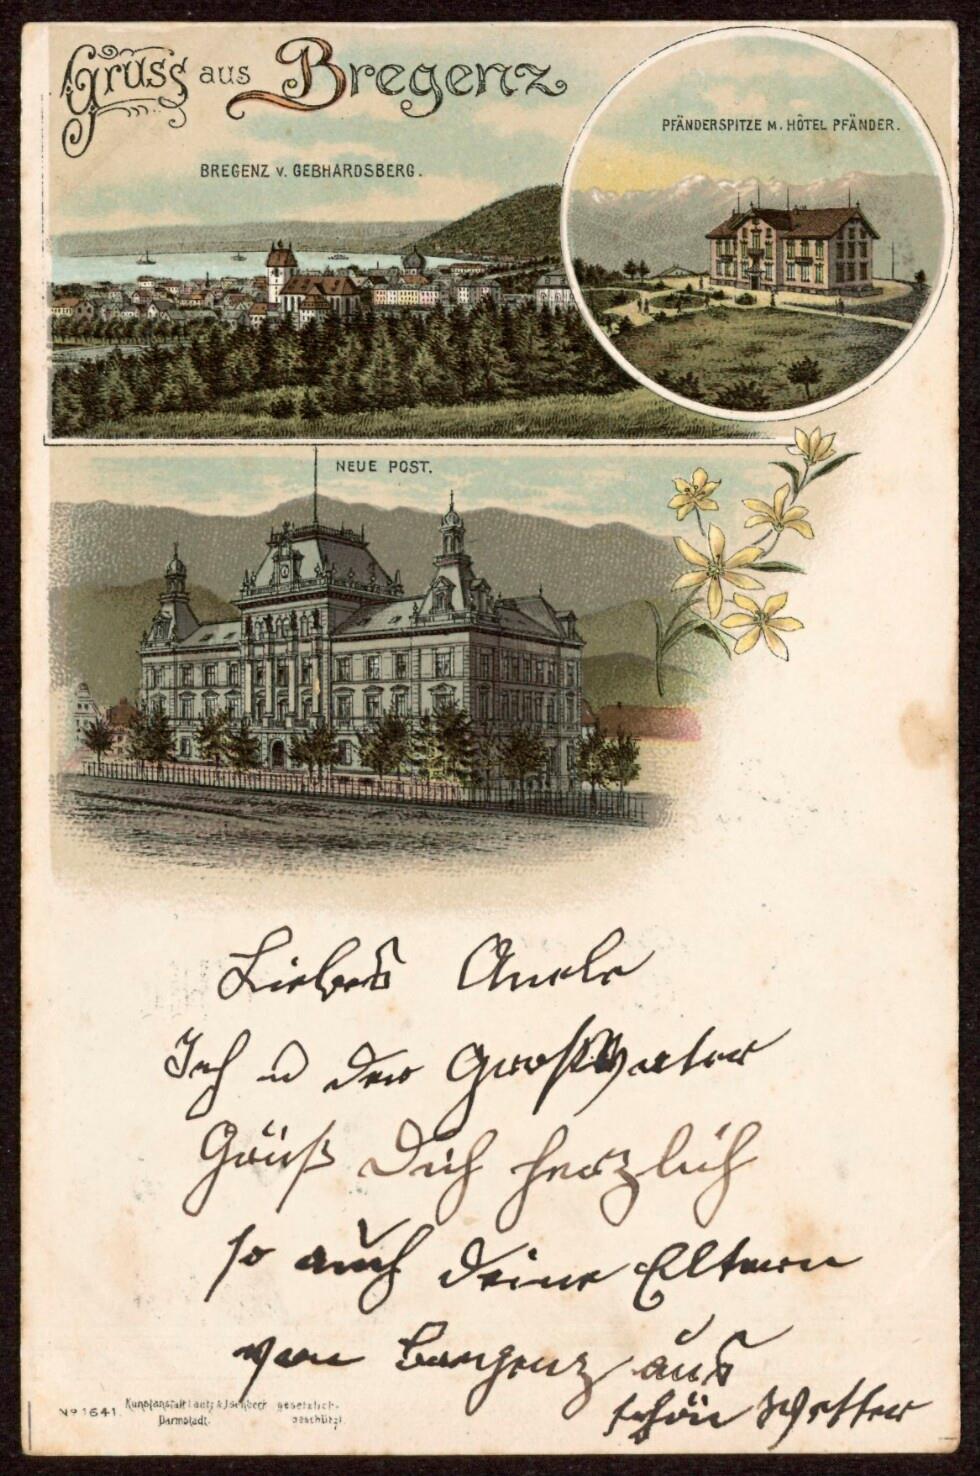 Gruss aus Bregenz
BREGENZ v. GEBHARDSBERG.
PFÄNDERSPITZE M. HÔTEL PFÄNDER.
NEUE POST.
Liebes
Ich u der Großvater
Grüß Dich herzlich
so auch deine Eltern
von Bregenz aus
schön Wetter
No 1641. Kunstanstalt Lautz & Isenbeck gesetzlich
Darmstadt. geschützt.